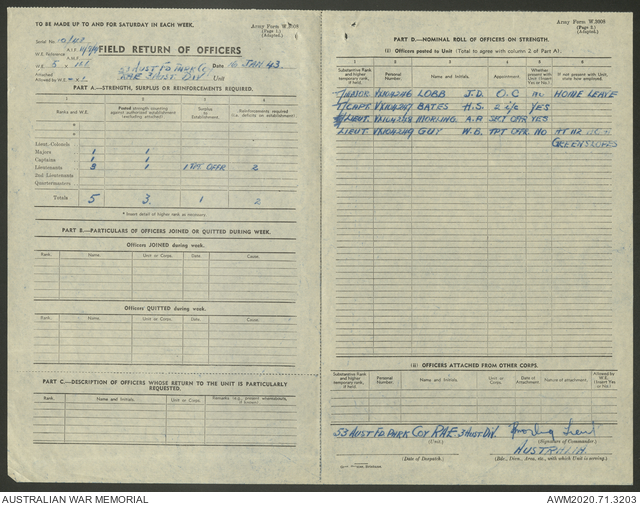 TO BE MADE UP TO AND FOR SATURDAY IN EACH WEEK.
Army Form W.3008
(Page 1.)
(Adapted.)
Serial No.
W.E. Reference
FIELD RETURN OF OFFICERS
W.E. 5
Attached
Allowed by W.E.
53 AUST FD PARK COY
RAE 3 AUST DIV Unit
Date 16 JAN 43
PART A.—STRENGTH, SURPLUS OR REINFORCEMENTS REQUIRED.
1 2 3 4
Ranks and W.E. Posted strength counting against authorized establishment (excluding attached). Surplus to Establishment. Reinforcements required (i.e. deficits on establishment)
Lieut. Colonels
Majors 1 1
Captains 1 1
Lieutenants 3 1 1 TPT OFFR 2
2nd Lieutenants
Quartermasters
Totals 5 3 1 2
* Insert detail of higher rank as necessary.
PART B.—PARTICULARS OF OFFICERS JOINED OR QUITTED DURING WEEK.
Officers JOINED during week.
Rank. Name. Unit or Corps. Date. Cause.
Officers QUITTED during week.
Rank. Name. Unit or Corps. Date. Cause.
PART C.—DESCRIPTION OF OFFICERS WHOSE RETURN TO THE UNIT IS PARTICULARLY
REQUESTED.
Rank. Name and Initials. Unit or Corps. Remarks (e.g., present whereabouts, if known).
Army Form W.3008
(Page 2.)
(Adapted.)
PART D.—NOMINAL ROLL OF OFFICERS ON STRENGTH.
(i) Officers posted to Unit (Total to agree with column 2 of Part A).
1 2 3 4 5 6
Substantive Rank and higher temporary rank, if held. Personal Number. Name and Initials. Appointment. Whether present with Unit (Insert Yes or No). If not present with Unit, state how employed.
T/MAJOR LOBB J.D. O.C NO HOME LEAVE
T/CAPT BATES H.S. 2 i/c YES
LIEUT. MORLING A.R SECT OFFR YES
LIEUT GUY W.B. TPT OFFR. NO AT 112
GREENSLOPES
(ii) OFFICERS ATTACHED FROM OTHER CORPS.
Substantive Rank and higher temporary rank, if held. Personal Number. Name and Initials. Unit or Corps. Date of Attachment. Nature of attachment. Allowed by W.E. (Insert Yes or No)
53 AUST FD. PARK COY RAE 3 AUST DIV.
(Unit.) (Signature of Commander.)
AUSTRALIA
(Date of Despatch.) (Bde., Divn., Area, etc., with which Unit is serving.)
AUSTRALIAN WAR MEMORIAL AWM2020.71.3203